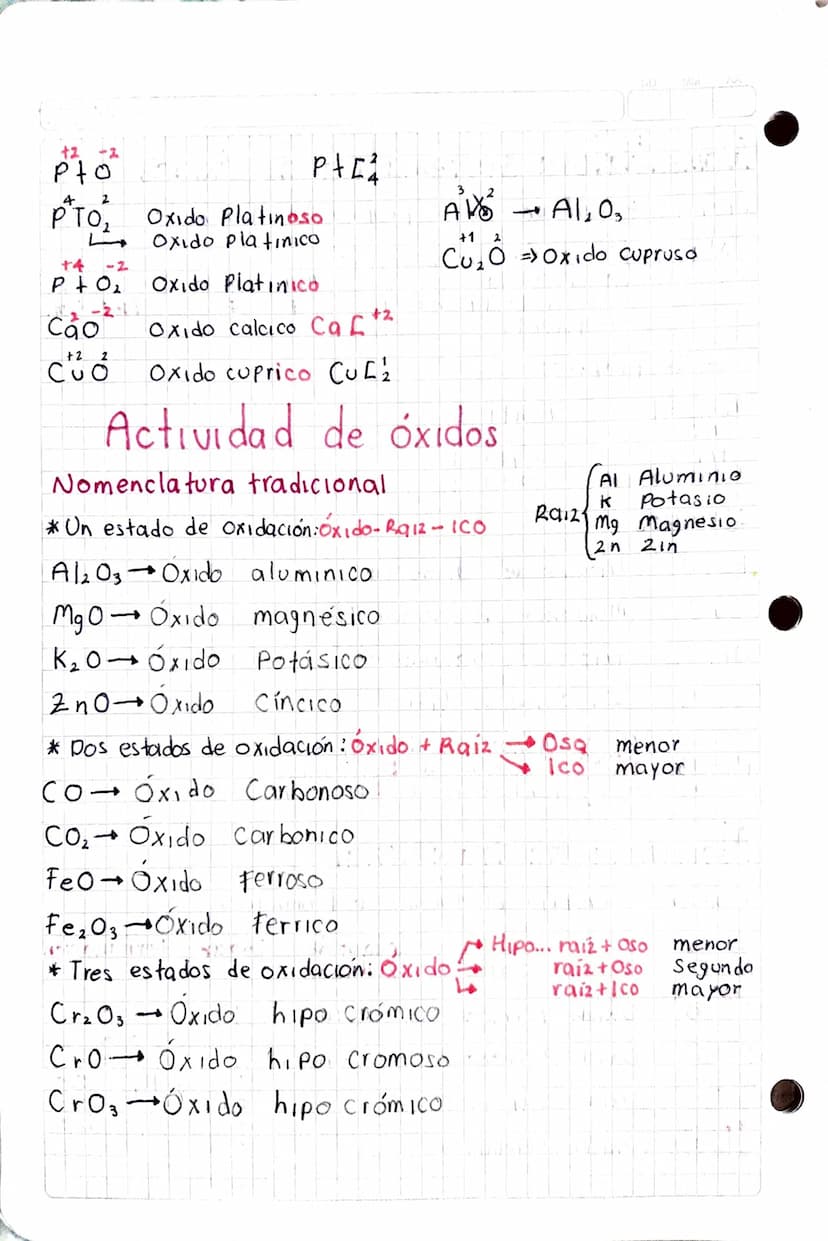 +2 -2
PtO
Pt[²₄
4 2
PTO₂ Oxido Platinoso
↳ Oxido platinico
+4 -2
PtO₂ Oxido Platinico
2 -2
CaO Oxido calcico Ca[⁺²
+2 2
CuO Oxido cuprico Cu[¹₂
3 2
Al O → Al₂O₃
+1 2
Cu₂O ⇒ Oxido cuproso
Actividad de óxidos
Nomenclatura tradicional
*Un estado de oxidación: óxido-Raiz-ICO
Raiz { Al Aluminio
K Potasio
Mg Magnesio
Zn Zin
Al₂O₃ → Óxido aluminico
MgO → Óxido magnésico
K₂O → Óxido Potásico
ZnO → Óxido Cíncico
* Dos estados de oxidación: Óxido + Raiz → Oso menor
↘ Ico mayor
CO → Óxido Carbonoso
CO₂ → Óxido Carbonico
FeO → Óxido ferroso
Fe₂O₃ → Óxido ferrico
Hipo... raiz + oso menor
* Tres estados de oxidación: Óxido → raiz + Oso Segundo
raiz + Ico mayor
Cr₂O₃ → Óxido hipo crómico
CrO → Óxido hipo Cromoso
CrO₃ → Óxido hipo crómico